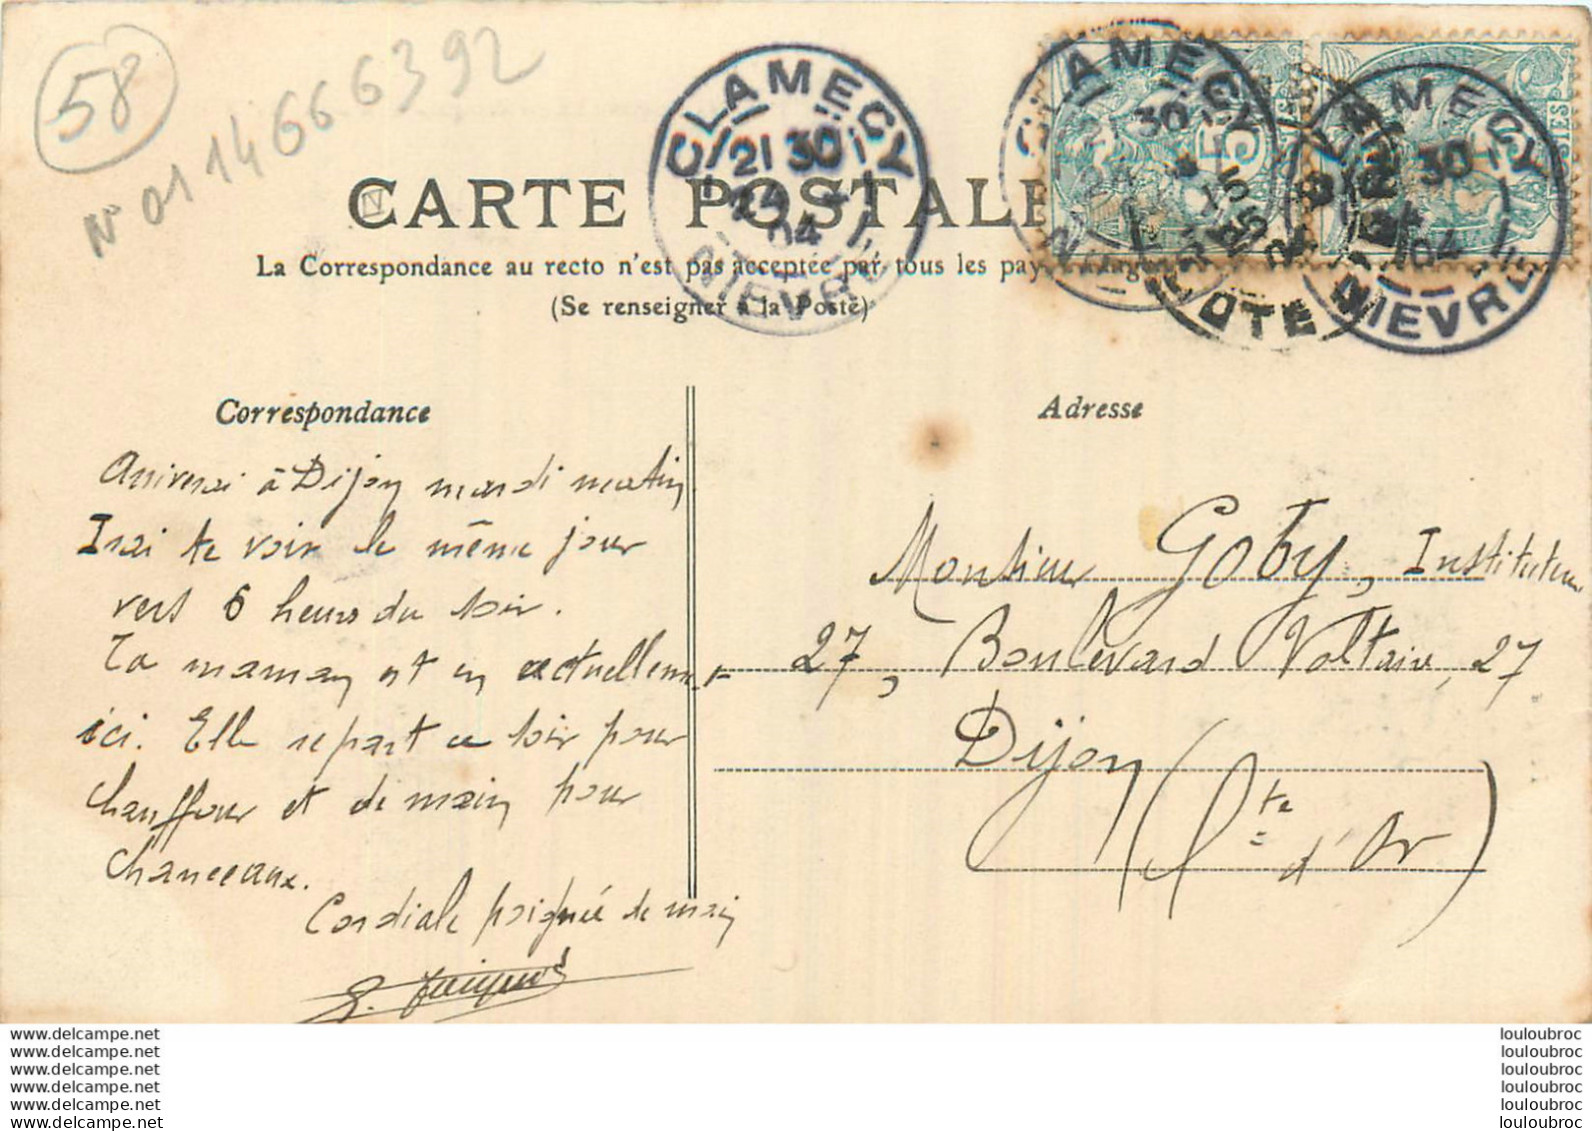 58
N° 01146666392
CARTE POSTALE
La Correspondance au recto n'est pas acceptée par tous les pays
(Se renseigner à la Poste)
CLAMECY
21 30
24
04
NIEVRE
CLAMECY
30
5
15
COTE
CLAMECY
30
04
NIEVRE
5
Correspondance
Arriverai à Dijon mardi matin
Irai te voir le même jour
vers 6 heures du soir.
Ta maman est en actuellement
ici. Elle repart ce soir pour
Chauffour et demain pour
Chanceaux.
Cordiale poignée de main
Adresse
Monsieur Goby, Instituteur
27, Boulevard Voltaire, 27
Dijon
(Cte d'Or)
www.delcampe.net
www.delcampe.net
www.delcampe.net
www.delcampe.net
www.delcampe.net
www.delcampe.net
louloubroc
louloubroc
louloubroc
louloubroc
louloubroc
louloubroc